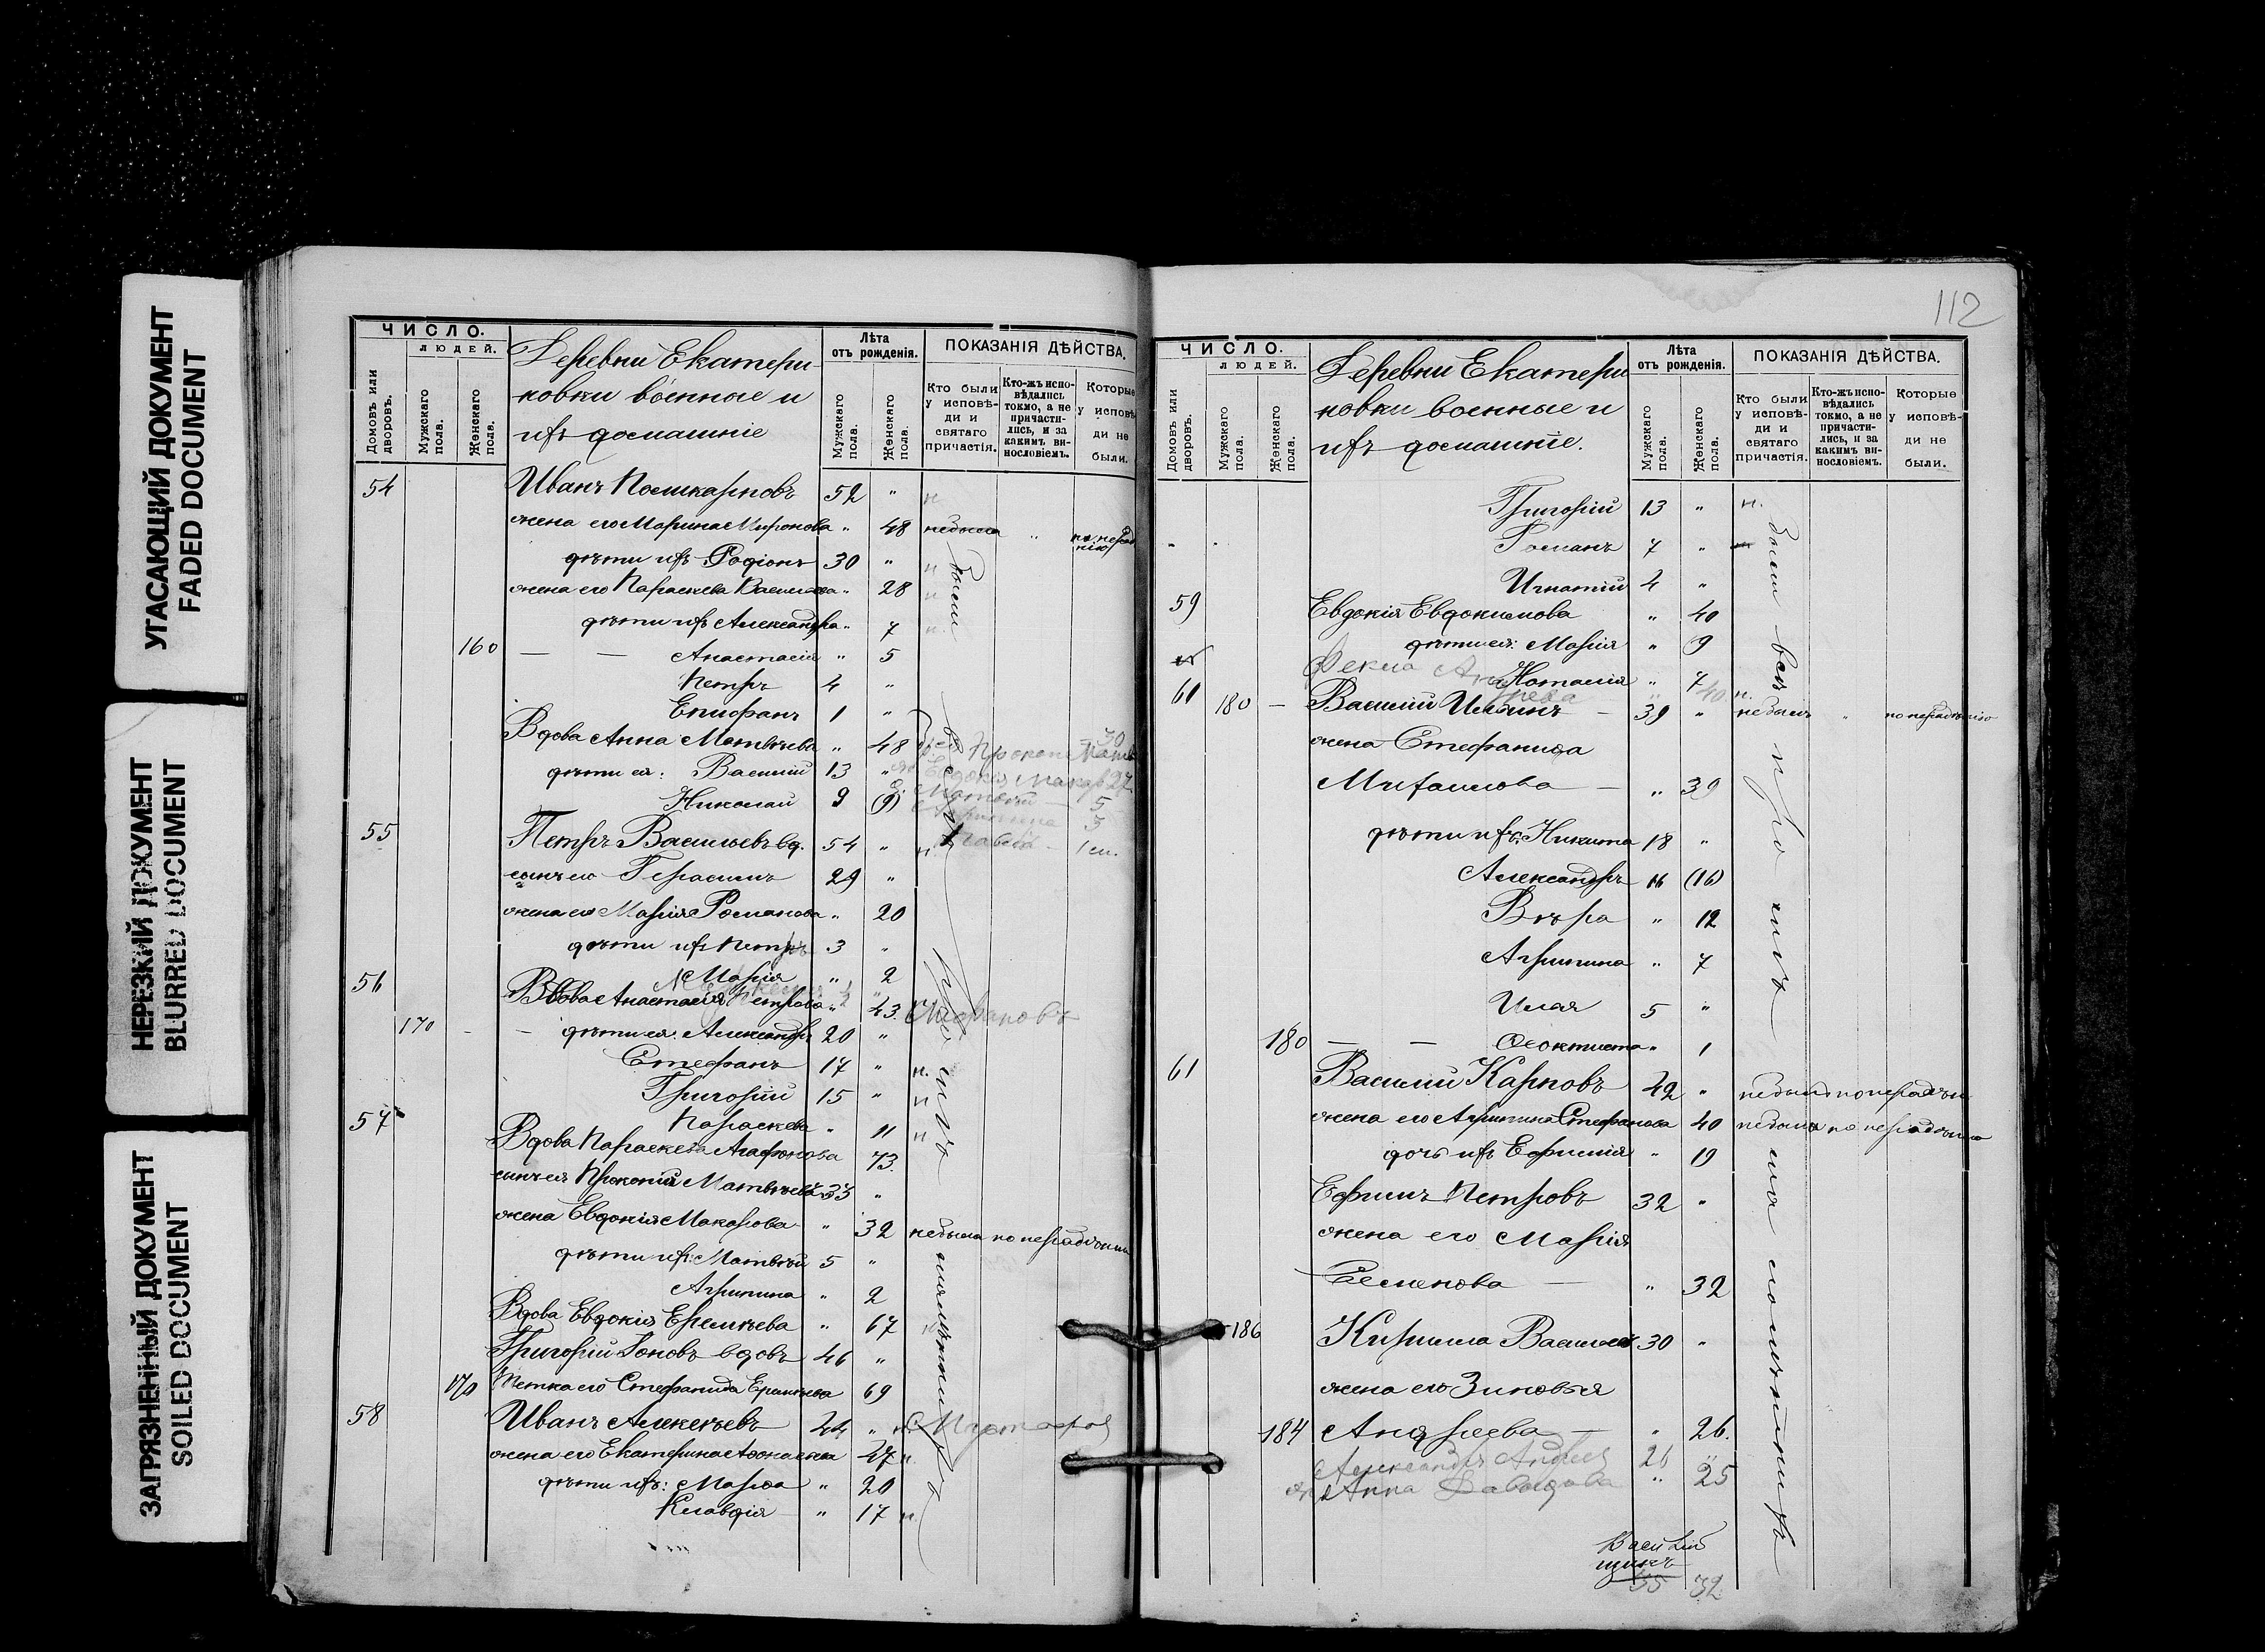 УГАСАЮЩИЙ ДОКУМЕНТ
FADED DOCUMENT
НЕРЕЗКИЙ ДОКУМЕНТ
BLURRED DOCUMENT
ЗАГРЯЗНЕННЫЙ ДОКУМЕНТ
SOILED DOCUMENT
ЧИСЛО.
ЛЮДЕЙ.
Домовъ или дворовъ.
Мужскаго пола.
Женскаго пола.
Деревни Екатери-
новки военные и
ихъ домашніе
Лѣта
отъ рожденія.
Мужскаго пола.
Женскаго пола.
ПОКАЗАНІЯ ДѢЙСТВА.
Кто были у исповѣ-ди и святаго причастія.
Кто-жъ испо-вѣдались токмо, а не причасти-лись, и за какимъ ви-нословіемъ.
Которые у исповѣ-ди не были.
54 Иванъ Поликарповъ 52 " н
жена его Марина Миронова " 48 небыла "
дѣти ихъ Родіонъ 30 " н
жена его Параскева Васильева " 28 н
дѣти ихъ Александра " 7 н.
160 — — Анастасія " 5
Петръ 4 "
Епифанъ 1 "
Вдова Анна Матвѣева " 48
дѣти ея: Василій 13 "
Николай 9 (9)
55 Петръ Васильевъ вд. 54 " н
сынъ его Герасимъ 29 "
жена его Марія Романова " 20
дѣти ихъ Петръ 3 "
Марія " 2
56 Вдова Анастасія Петрова " 43.
170 - - дѣти ея: Александръ 20 "
Стефанъ 17 " н.
Григорій 15 " н
Параскева " 11 н
57 Вдова Параскева Агафонова 73.
сынъ ея Прокопій Матвѣевъ 33 "
жена Евдокія Макарова " 32 небыла по нерадѣнію
дѣти ихъ: Матвѣй 5 "
Агрипина " 2
Вдова Евдокія Еремѣева " 67
Григорій Іоновъ вдовъ 46 "
170 Тетка его Стефанида Еремѣева 69
58 Иванъ Алексѣевъ 44 "
жена его Екатерина 47 н.
дѣти ихъ: Марѳа " 20
Клавдія " 17 н.
были
112
ЧИСЛО.
ЛЮДЕЙ.
Домовъ или дворовъ.
Мужскаго пола.
Женскаго пола.
Деревни Екатери
новки военные и
ихъ домашніе.
Лѣта
отъ рожденія.
Мужскаго пола.
Женскаго пола.
ПОКАЗАНІЯ ДѢЙСТВА.
Кто были у исповѣ-ди и святаго причастія.
Кто-жъ испо-вѣдались токмо, а не причасти-лись, и за какимъ ви-нословіемъ.
Которые у исповѣ-ди не были.
Григорій 13 " н.
Романъ 7 "
Игнатій 4 "
59 Евдокія Евдокимова " 40
дѣти ея: Марія " 9
Наталія " 7
61 180 — Василій Ильинъ — 39 " небылъ " по нерадѣнію
жена Стефанида
Михаилова — " 39
дѣти ихъ: Никита 18 "
Александръ 16 (16)
Вѣра " 12
Агрипина " 7
Илья 5 "
180 — — Ѳеоктиста " 1
61 Василій Карповъ 42 " небылъ по нерадѣнію
жена его Агрипина Стефанова 40 небыла по нерадѣнію
дочь ихъ Ефимія " 19
Ефимъ Петровъ 32 "
жена его Марія
Семенова — " 32
186 Кирилла Васильевъ 30 "
жена его Зиновья
184 Андреева — " 26.
Александръ Андреев 26 "
Анна Давыдова " 25
были всѣ
35 32